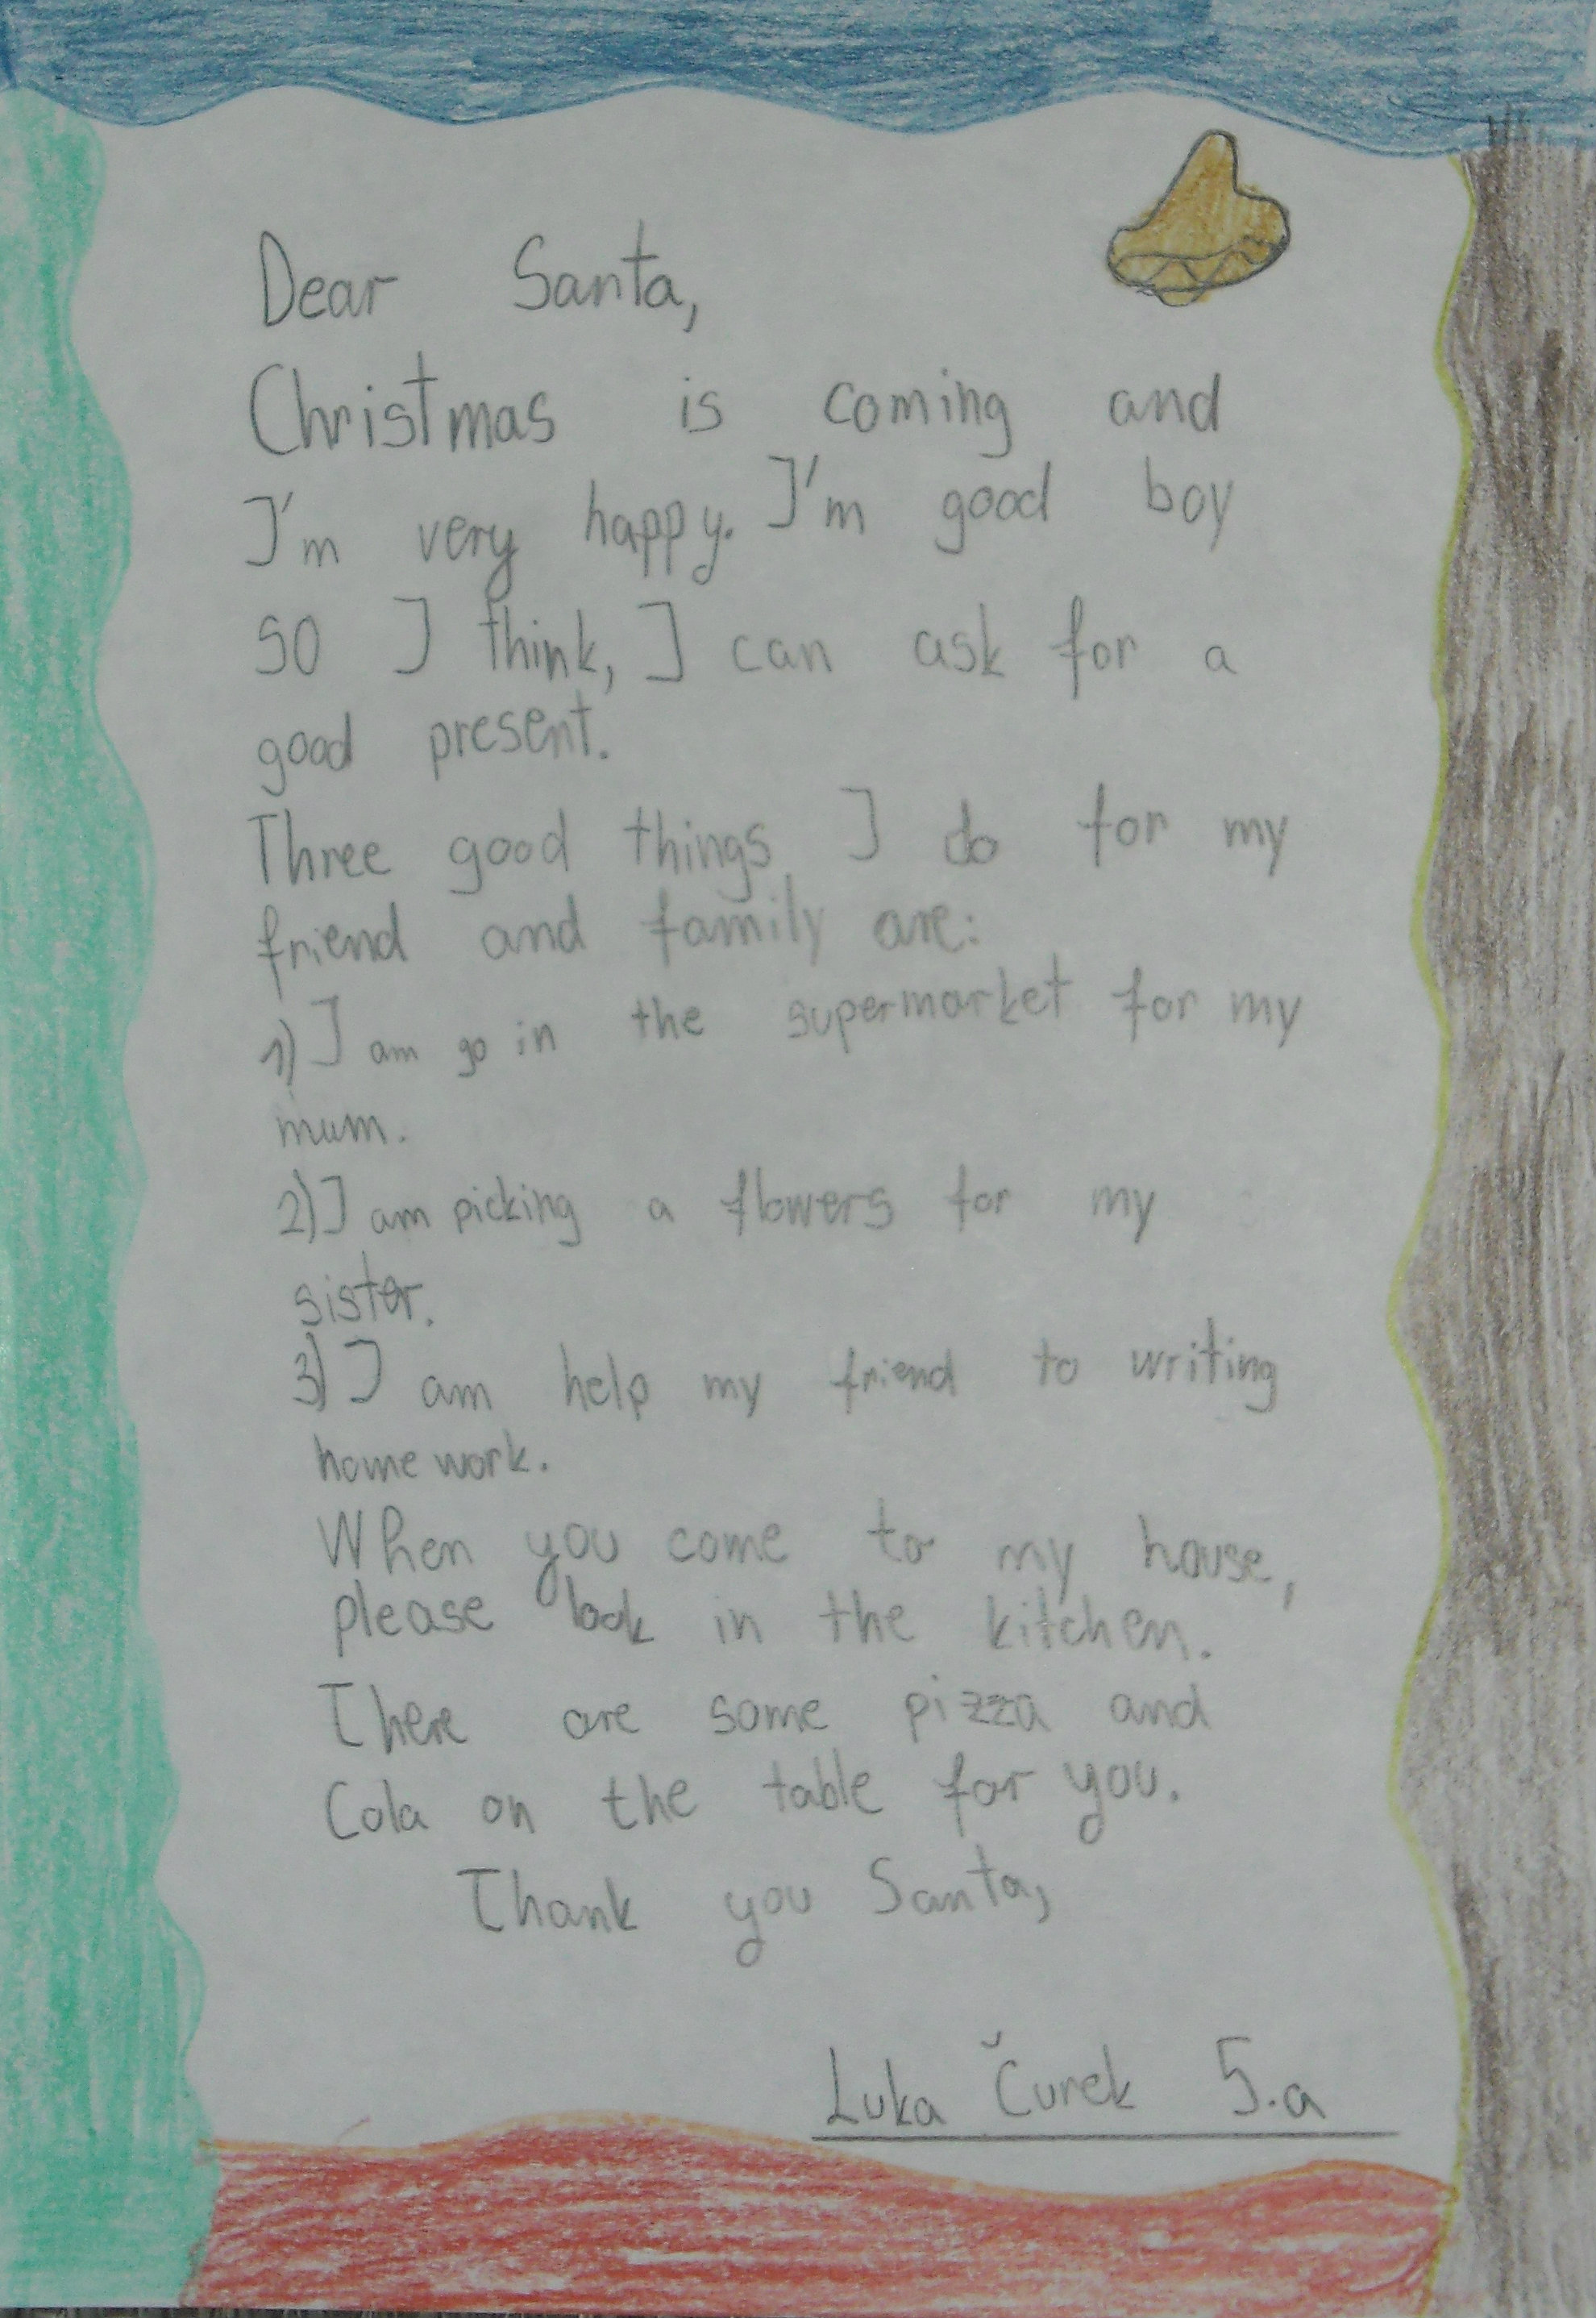 Dear Santa,
Christmas is coming and
I'm very happy. I'm good boy
so I think, I can ask for a
good present.
Three good things I do for my
friend and family are:
1) I am go in the supermarket for my
mum.
2) I am picking a flowers for my
sister.
3) I am help my friend to writing
home work.
When you come to my house,
please look in the kitchen.
There are some pizza and
Cola on the table for you.
Thank you Santa,
Luka Čurek 5.a